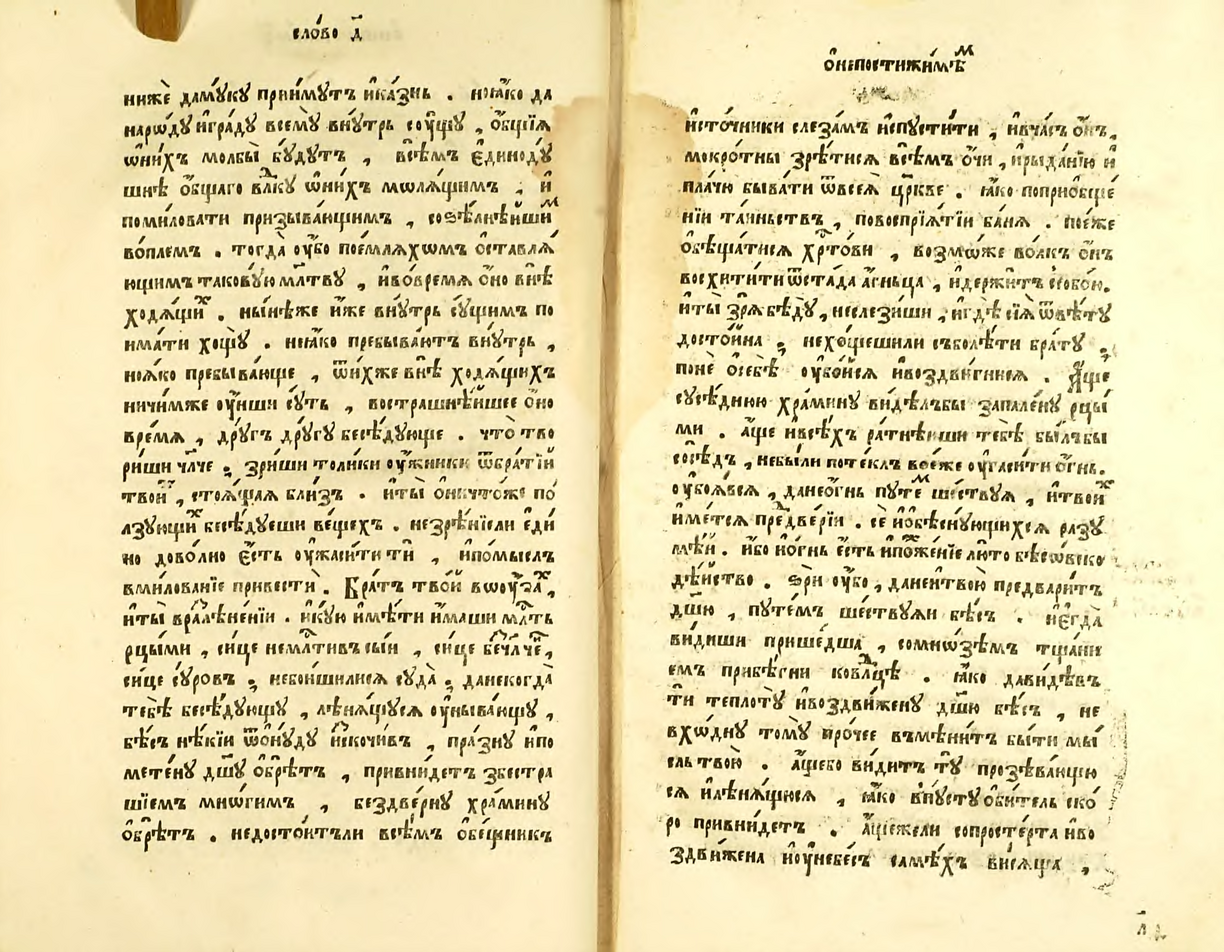 сло́во д҃
нижѐ дамꙋ́кꙋ прїи́мꙋтъ ика́знь . ноꙗ́ко да
наро́дꙋ игра́дꙋ всемꙋ̀ внꙋ́трь сꙋ́щꙋ , ѻ҆́бщїѧ
ѡни́хъ молбы̀ бꙋ́дꙋтъ , всѣ́мъ є҆диподꙋ́
шнѣ ѻ҆́бщаго влⷣкꙋ ѡни́хъ мѡлѧ́щимъ , и҆
поми́ловати призыва́ющимъ , соѕѣ́лнѣйшиⷨ
во́племъ . тогда̀ ᲂу҆́бо пое́млѧхомъ ѡ҆ставлѧ́
ющимъ такову́ю мл҃твꙋ , ивовре́мѧ ѻ҆́но внѣ̀
ходѧ́щиⷯ . ны́нѣже и҆́же внꙋ́трь сꙋ́щимъ по
има́ти хощꙋ̀ . неꙗ́ко пребыва́ютъ внꙋ́трь ,
ноꙗ́ко пребыва́юще , ѿни́хже внѣ̀ ходѧ́щихъ
ничи́мже ᲂу҆́нши сꙋ́ть , востра́шнѣйшее ѻ҆́но
вре́мѧ , дрꙋ́гъ дрꙋ́гꙋ бесѣ́дꙋюще . что̀ тво
ри́ши чл҃че ; зри́ши толи́ки ᲂу҆́жники ѿбра́тїй
твои́хъ , стоѧ́щаѧ бли́зъ . иты̀ ѻ҆ничто́же по́
лзꙋющиⷯ бесѣ́дꙋеши ве́щехъ . незрѣ́нїели є҆ди́
но дово́лно є҆́сть ᲂу҆жаси́ти тѧ̀ , ипо́мыслъ
вми́лованїе привестѝ . Бра́тъ тво́й воᲂу҆́заⷯ ,
иты̀ вралѣне́нїи . икꙋ́ю имѣ́ти и҆́маши мл҃ть
рцы́ми , си́це неми́лⷭ҇тивъ сы́й , си́це бечл҃чⷩе ,
си́це сꙋро́въ ; небои́шилисѧ сꙋда̀ ; данекогда̀
тебѣ̀ бесѣ́дꙋющꙋ , лѣнѧ́щꙋсѧ ᲂу҆ныва́ющꙋ ,
бѣ́съ нѣ́кїй ѿѻ҆нꙋ́дꙋ иско́чивъ , пра́зднꙋ ипо
мете́нꙋ дш҃ꙋ ѻ҆брѣ́тъ , привни́детъ збестра́
шїемъ мнѡ́гимъ , бездве́рнꙋ хра́минꙋ
ѻ҆брѣ́тъ . недосто́итъли всѣ́мъ ѻ҆бе́щникъ
ѻ҆непостижи́мѣⷨ
и҆сто́чники слеза́мъ и҆спꙋсти́ти , ивча́съ ѻ҆́нъ ,
мокро́тны зрѣ́тисѧ всѣ́мъ ѻ҆́чи , ирыда́нїю и҆
пла́чю быва́ти ѿвсеѧ̀ цр҃кве . ꙗ҆́ко поприѻбще́
нїи та́иньствъ , повоспрїѧ́тїи ба́нѧ . пое́же
ѻ҆бѣща́тисѧ хрⷭ҇то́ви , возмо́же во́лкъ ѻ҆́нъ
восхити́ти ѿста́да а҆́гньца , идержи́тъ ссобо́ю .
иты̀ зрѧ̀ бѣдꙋ̀ , неслези́ши , игдѣ̀ сїѧ̀ ѿвѣ́тꙋ
досто́йна ; нехо́щешили съболѣ́ти бра́тꙋ ;
понѐ ѻ҆себѣ̀ ᲂу҆бо́йсѧ ивоздви́гнисѧ . А҆́ще
сꙋсѣ́днюю хра́минꙋ ви́дѣлъбы запале́нꙋ рцы̀
ми . а҆́ще ивсѣ́хъ ра́тнѣйши тебѣ̀ бы́лъбы
сосѣ́дъ , небы́лили поте́клъ воє́же ᲂу҆гаси́ти ѻ҆́гнь .
ᲂу҆боѧ́всѧ , данеѻ҆́гнь пꙋте́ⷨ ше́ствꙋѧ , итвои́ⷯ
и҆́метсѧ предве́рїи . сѐ иѻ҆бѣсну́ющихсѧ разꙋ
мѣ́й . и҆́бо иѻ҆́гнь є҆́сть ипоже́нїе лю́то бѣсо́вско
дѣ́йство . ѕрѝ ᲂу҆́бо , данеитвою̀ предвари́тъ
дш҃ю , пꙋте́мъ ше́ствꙋѧи бѣ́съ . иє҆гда̀
ви́диши прише́дша , сомно́зѣмъ тща́ни
емъ прибѣ́гни ковлⷣцѣ . ꙗ҆́ко да ви́дѣвъ
ти теплотꙋ̀ ивоздви́женꙋ дш҃ю бѣ́съ , не
вхо́днꙋ томꙋ̀ про́чее въмѣни́тъ бы́ти мы́
сль твою̀ . а҆́щебо ви́дитъ тꙋ̀ прозѣва́ющꙋ
сѧ илѣнѧ́щꙋюсѧ , ꙗ҆́ко впꙋстꙋ ѻ҆би́тель ско́
ро привни́детъ . а҆́щежели сопросте́рта иво
здви́жена иᲂу҆небе́съ самѣ́хъ висѧ́ща ,